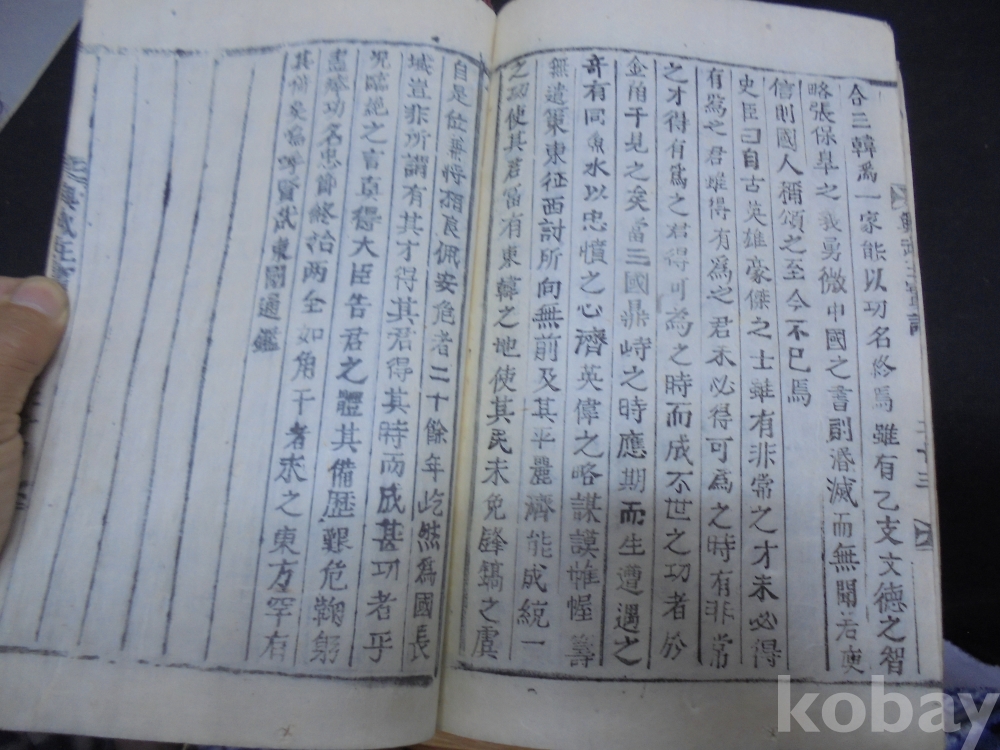 合三韓爲一家能以功名終焉雖有乙支文德之智
略張保皐之義勇微中國之書則潛滅而無聞若庾
信則國人稱頌之至今不已焉
史臣曰自古英雄豪傑之士雖有非常之才未必得
有爲之君雖得有爲之君未必得可爲之時有非常
之才得有爲之君得可爲之時而成不世之功者於
金角干見之矣當三國鼎峙之時應期而生遭遇之
奇有同魚水以忠憤之心濟英偉之略謀謨帷幄籌
無遺策東征西討所向無前及其平麗濟能成統一
之功使其君富有東韓之地使其民未免鋒鏑之虞
自是位兼將相良佩安危者二十餘年屹然爲國長
城豈非所謂有其才得其君得其時而成甚功者乎
況臨絶之言眞得大臣告君之體其備歷艱危鞠躬
盡瘁功名忠節終洽两全如角干者求之東方罕有
其儔矣嗚呼賢哉東國通鑑
興武王實
kobay